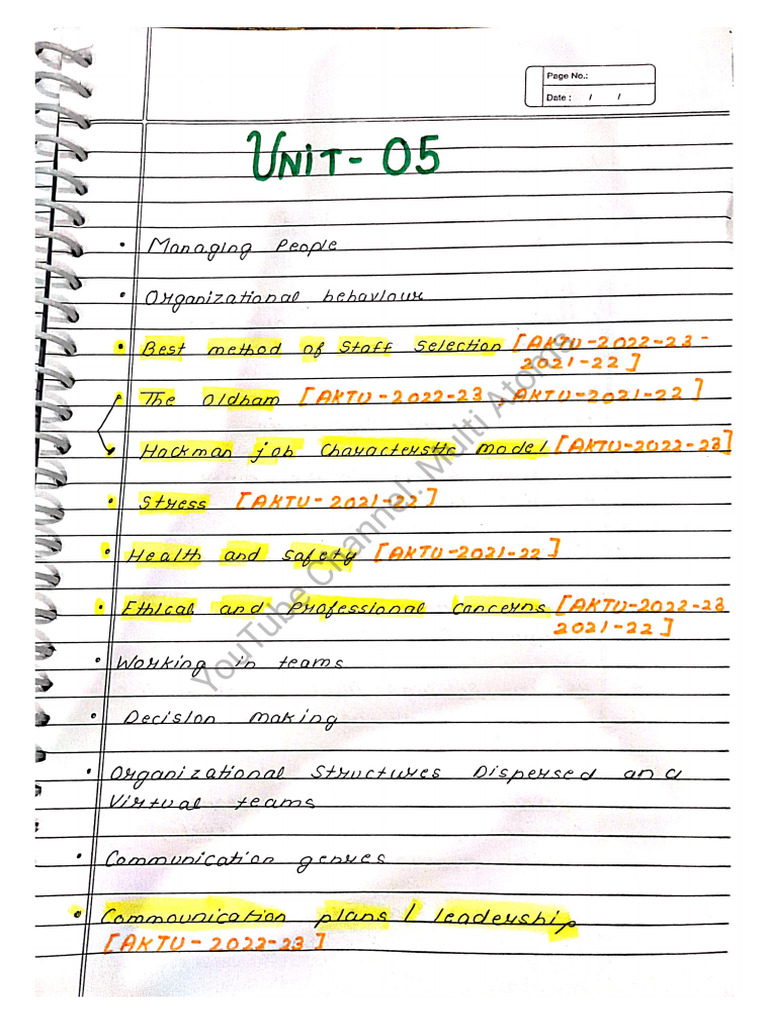 Page No.:
Date : / /
UNIT - 05
• Managing People
• Organizational behaviour
• Best method of staff selection [AKTU-2022-23-
2021-22]
• The Oldham [AKTU-2022-23 - AKTU-2021-22]
• Hackman job characterstic model [AKTU-2022-23]
• Stress [AKTU-2021-22]
• Health and safety [AKTU-2021-22]
• Ethical and Professional concerns [AKTU-2022-23
2021-22]
• Working in teams
• Decision making
• Organizational structures Dispersed and
Virtual teams
• Communication genres
• Communication plans / leadership
[AKTU-2022-23]
YouTube Channel: Multi Atoms